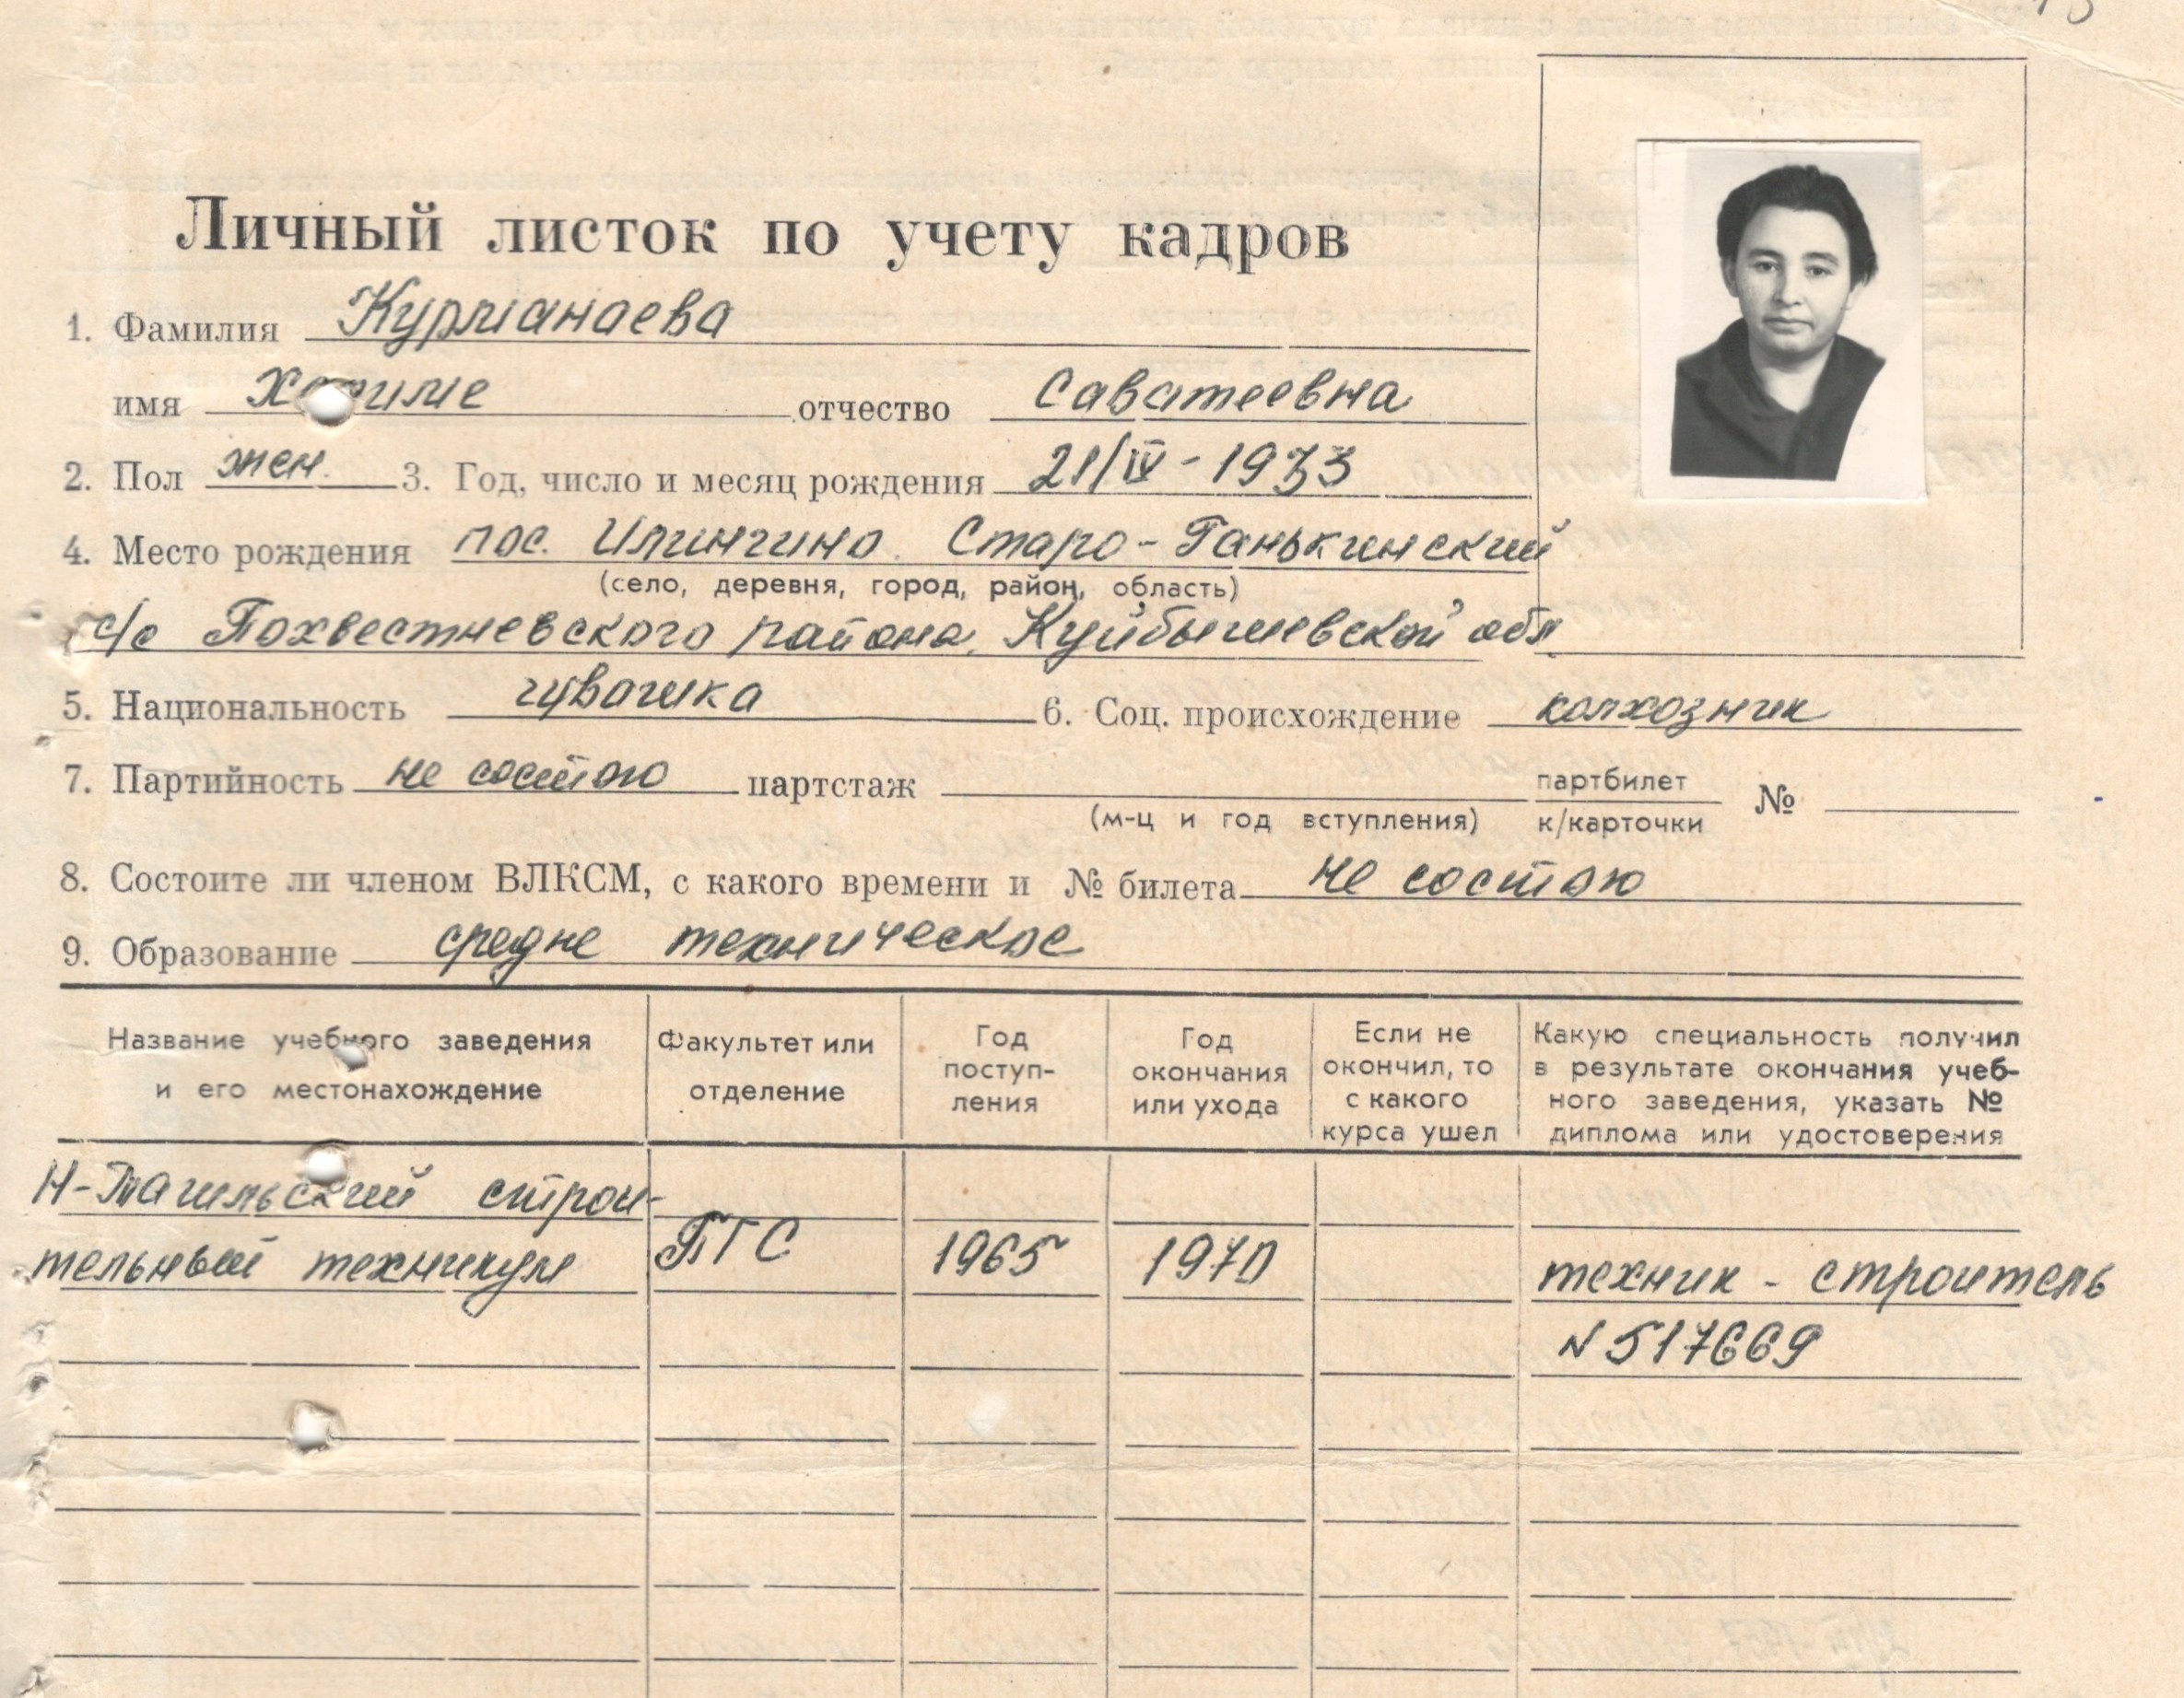 Личный листок по учету кадров
1. Фамилия Курманаева
имя отчество Саватеевна
2. Пол жен. 3. Год, число и месяц рождения 21/IV - 1933
4. Место рождения пос. Старо-Ганькинский
(село, деревня, город, район, область)
с/с Похвестневского района, Куйбышевской обл.
5. Национальность чувашка 6. Соц. происхождение колхозник
7. Партийность не состою партстаж партбилет №
(м-ц и год вступления) к/карточки
8. Состоите ли членом ВЛКСМ, с какого времени и № билета не состою
9. Образование средне техническое
Название учебного заведения и его местонахождение
Факультет или отделение
Год поступ-ления
Год окончания или ухода
Если не окончил, то с какого курса ушел
Какую специальность получил в результате окончания учеб-ного заведения, указать № диплома или удостоверения
Н-Тагильский строи-
тельный техникум ПГС 1965 1970 техник - строитель
N 517669